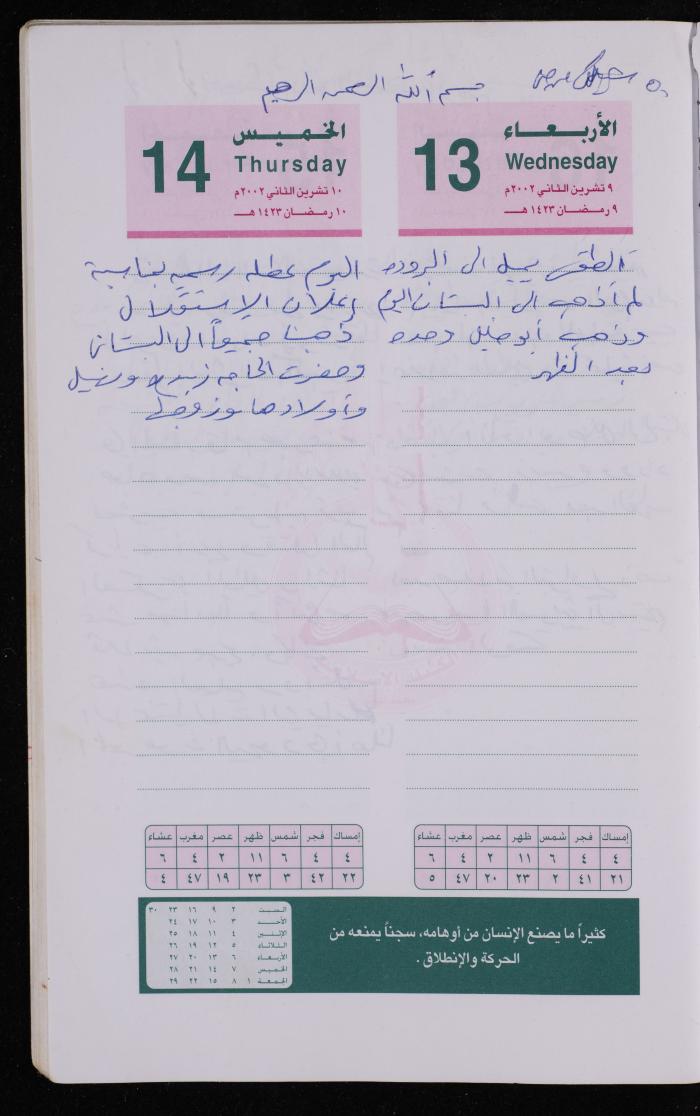 بسم الله الرحمن الرحيم
الأربعاء
13
Wednesday
٩ تشرين الثاني ٢٠٠٢م
٩ رمضان ١٤٢٣ هـ
الطقس يميل الى البرودة
لم أذهب الى البستان اليوم
وذهب أبو خليل وحده
بعد الظهر
الخميس
14
Thursday
١٠ تشرين الثاني ٢٠٠٢م
١٠ رمضان ١٤٢٣ هـ
اليوم عطله رسميه بمناسبة
إعلان الاستقلال
ذهبنا جميعاً الى البستان
وحضرت الحاجه زبيده وسهيل
وأولادها وزوجها
إمساك فجر شمس ظهر عصر مغرب عشاء
٤ ٤ ٦ ١١ ٢ ٤ ٦
٢١ ٤١ ٢ ٢٣ ٢٠ ٤٧ ٥
إمساك فجر شمس ظهر عصر مغرب عشاء
٤ ٤ ٦ ١١ ٢ ٤ ٦
٢٢ ٤٢ ٣ ٢٣ ١٩ ٤٧ ٤
كثيراً ما يصنع الإنسان من أوهامه، سجناً يمنعه من
الحركة والإنطلاق.
السبت ٢ ٩ ١٦ ٢٣ ٣٠
الأحد ٣ ١٠ ١٧ ٢٤
الإثنين ٤ ١١ ١٨ ٢٥
الثلاثاء ٥ ١٢ ١٩ ٢٦
الأربعاء ٦ ١٣ ٢٠ ٢٧
الخميس ٧ ١٤ ٢١ ٢٨
الجمعة ١ ٨ ١٥ ٢٢ ٢٩